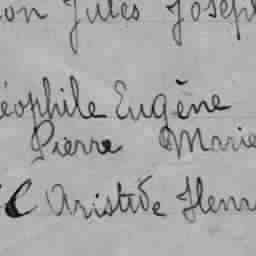 on Jules Joseph
éophile Eugène
Pierre Marie
Aristide Henr